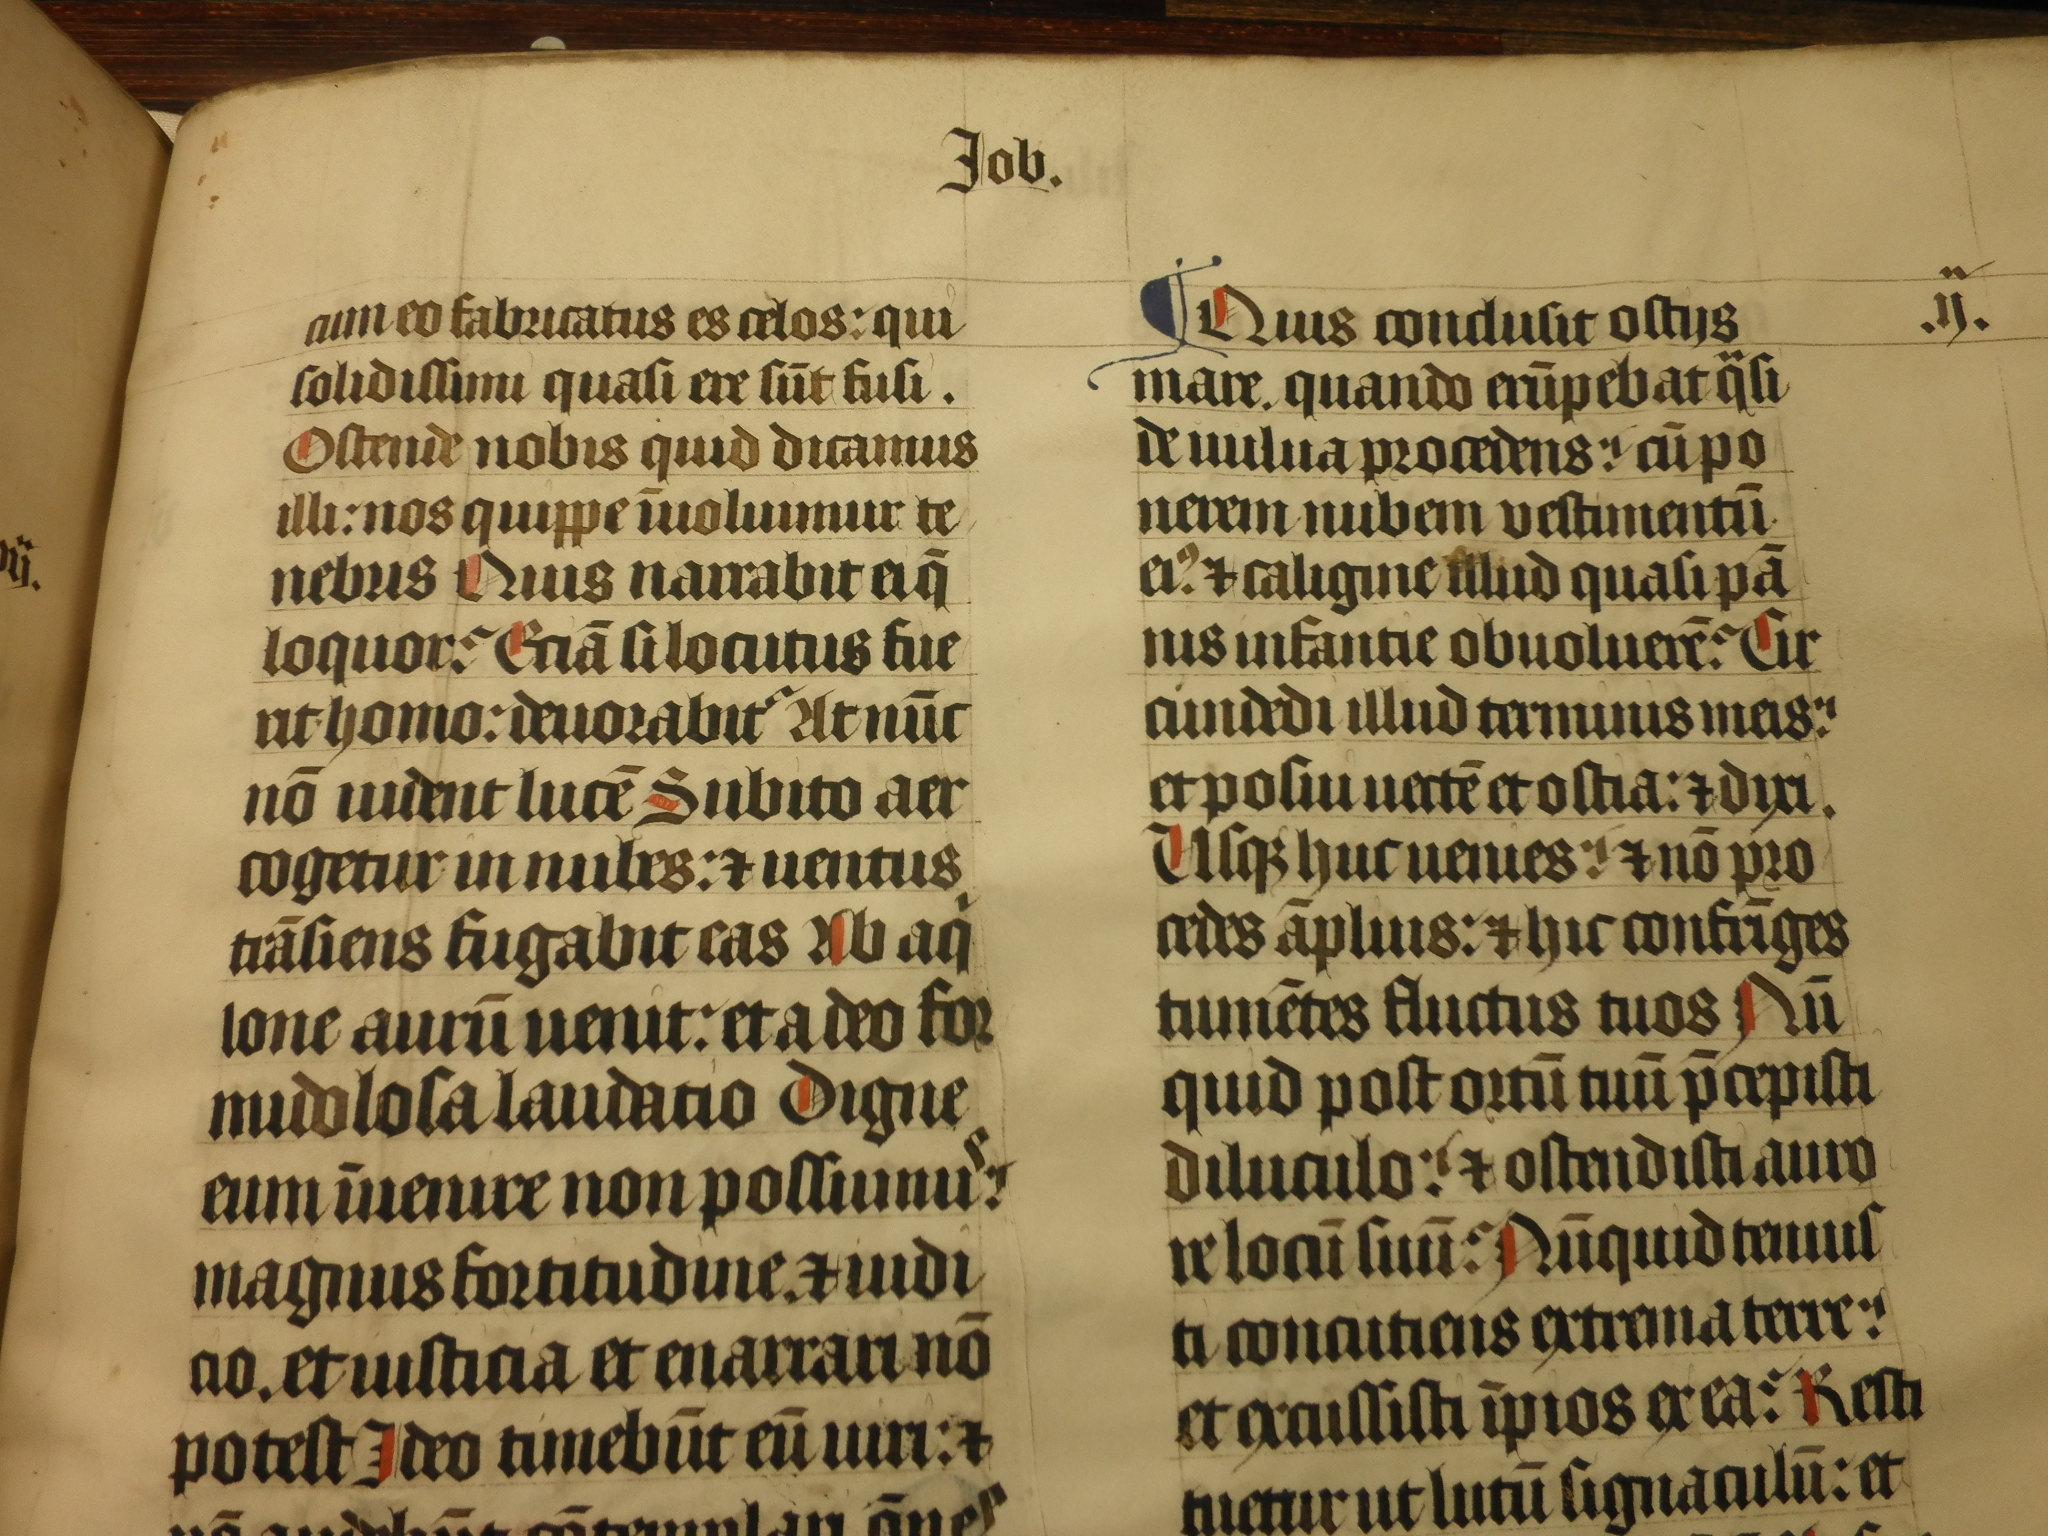 Job.
cum eo fabricatus es celos: qui
solidissimi quasi ere sūt fusi.
Ostende nobis quid dicamus
illi: nos quippe īuoluimur te
nebris Quis narrabit ei q̄
loquor? Eciā si locutus fue
rit homo: deuorabit᷑ At nūc
nō uident lucē Subito aer
cogetur in nubes: ⁊ uentus
trāsiens fugabit eas Ab aqͥ
lone aurū uenit: et a deo for
midolosa laudatio Digne
eum īuenire non possumus:
magnus fortitudine. ⁊ iudi
cio. et iusticia et enarrari nō
potest Ideo timebūt eū uiri: ⁊
nō audebūt cōtemplari om̄es
Quis conclusit ostijs
.ij.
mare. quando erūpebat q̈si
de uulua procedens: cū po
nerem nubem vestimentū
eiꝰ ⁊ caligine illud quasi pā
nis infantie obuoluerē? Cir
cumdedi illud terminis meis:
et posui uectē et ostia: ⁊ dixi.
Usqꝫ huc uenies: ⁊ nō pro
cedes āplius: ⁊ hic confrīges
tumētes fluctus tuos Nū
quid post ortū tuū p̄cepisti
diluculo: ⁊ ostendisti auro
re locū suū? Nūquid tenuis
ti concutiens extrema terre:
et excussisti īpios ex ea? Resti
tuetur ut lutū signaculū: et